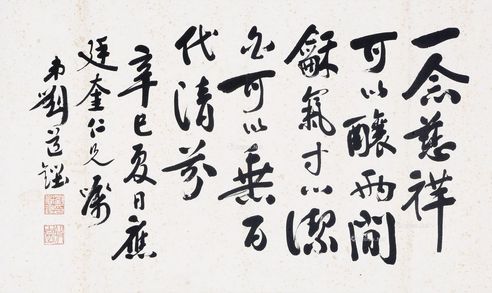 一念慈祥
可以釀兩間
龢氣寸心潔
白可以垂百
代清芬
辛巳夏日應
廷奎仁兄囑
弟劉道鏗